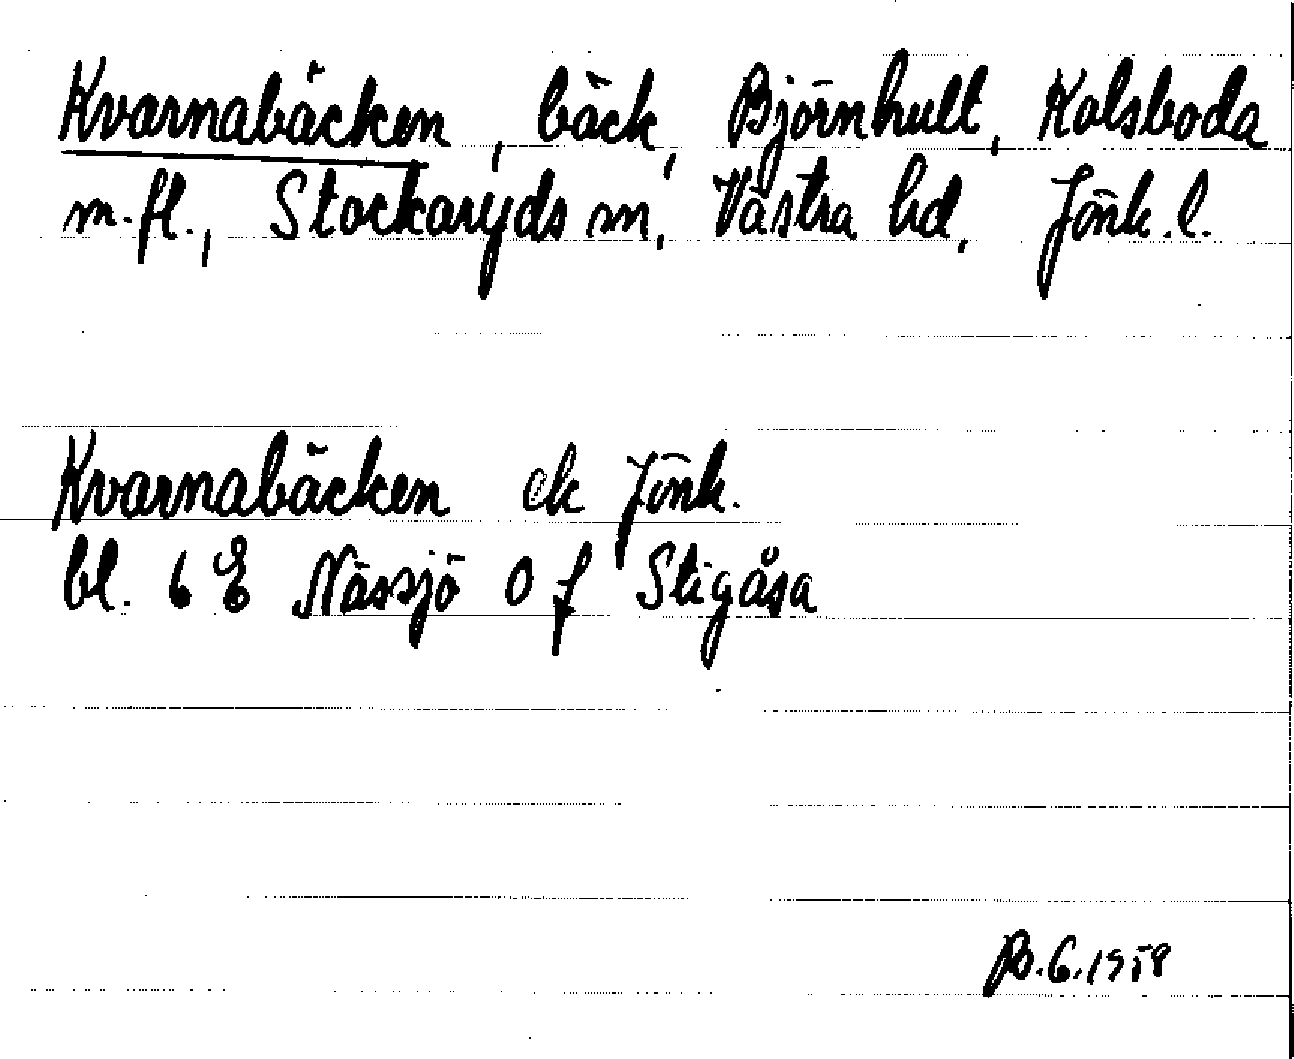 Kvarnabäcken, bäck, Björnhult, Kalsboda
m.fl., Stockaryds sn, Västra hd, Jönk. l.
Kvarnabäcken ek Jönk.
bl. 6 E Nässjö 0 f Stigåsa
B.G.1958